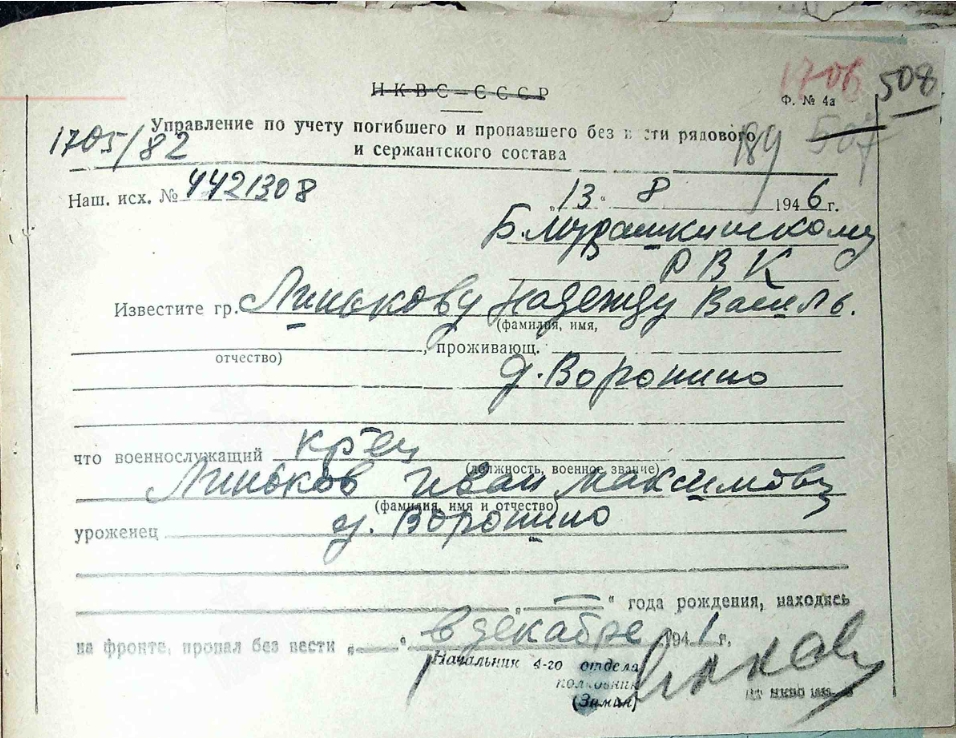 НКВС-СССР
1706 508
Ф. № 4а
Управление по учету погибшего и пропавшего без вести рядового
1705/82 и сержантского состава 189 507
Наш. исх. № 4421308 „13" 8 1946 г.
Б.Мурашкинскому
РВК
Известите гр. Линькову Надежду Василь.
(фамилия, имя,
отчество) , проживающ.
д. Воронино
что военнослужащий кр-ец
(должность, военное звание)
Линьков Иван Максимович
(фамилия, имя и отчество)
уроженец д. Воронино
„ — " года рождения, находясь
на фронте, пропал без вести „ " в декабре 1941 г.
Начальник 4-го отдела
полковник
(Зимин)